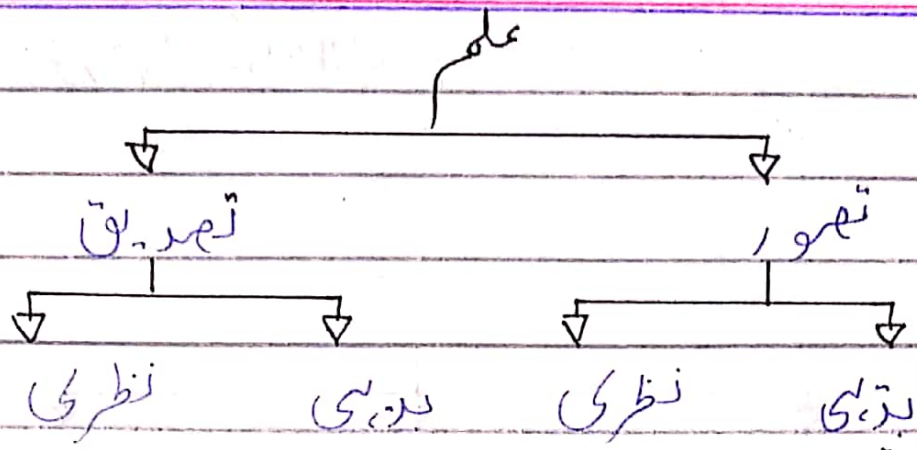 علم
تصور تصدیق
بدیہی نظری بدیہی نظری